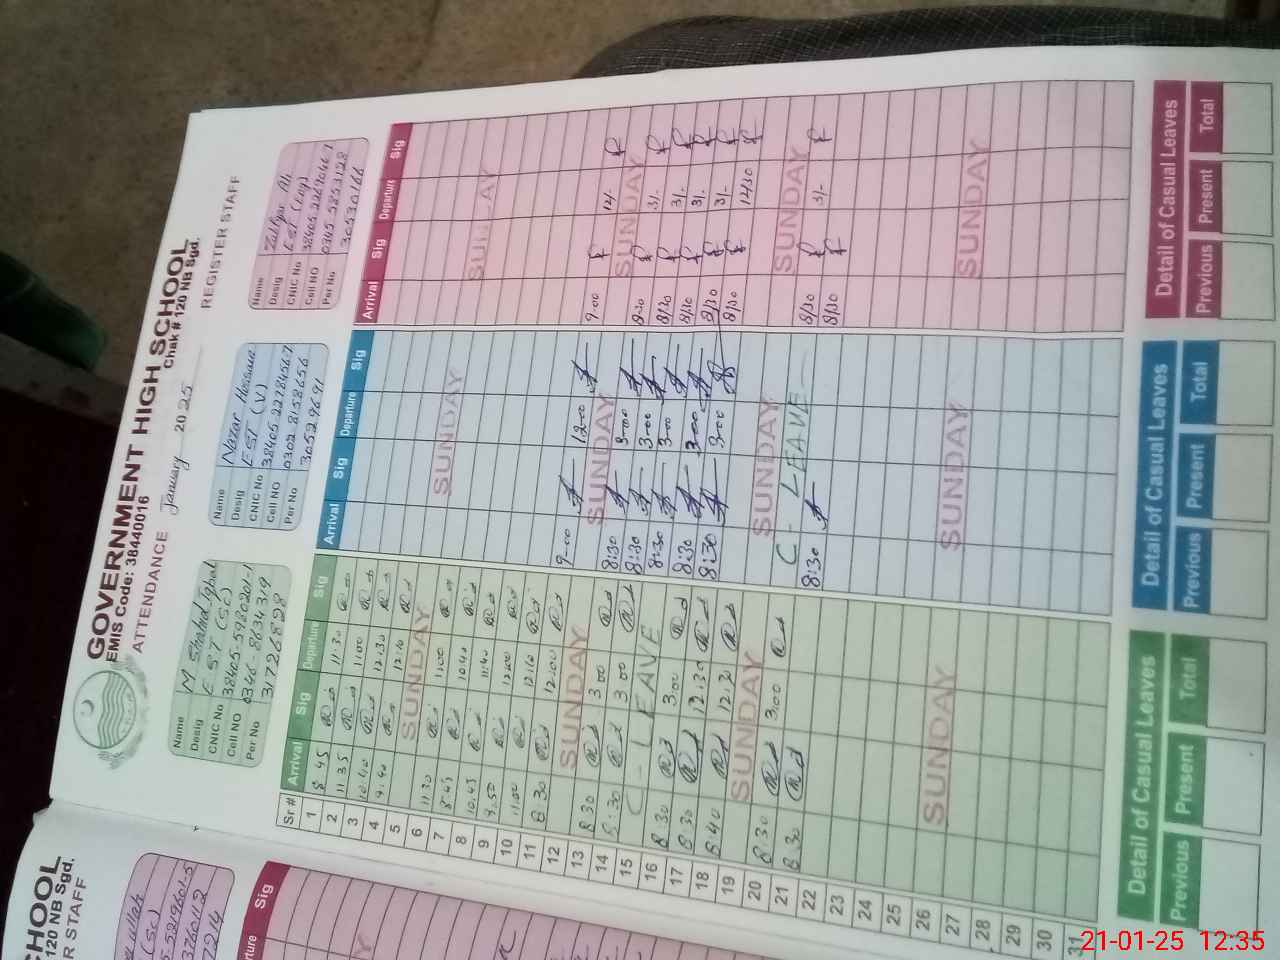 GOVERNMENT HIGH SCHOOL
EMIS Code: 38440016
Chak # 120 NB Sgd.
ATTENDANCE January 2025 REGISTER STAFF
Name M Shahid Iqbal
Desig EST (Sc)
CNIC No 38405-5980201-1
Cell NO 0346-8634319
Per No 31726828
Name Nazar Hussain
Desig EST (V)
CNIC No 38405 22784567
Cell NO 0302 8158656
Per No 30529691
Name
Desig EST (Eng)
CNIC No
Cell NO 0345 5853128
Per No 30530166
Sr # Arrival Sig Departure Sig Arrival Sig Departure Sig Arrival Sig Departure Sig
1 8 45 11:30
2 11 35 11 00
3 10 40 12:30
4 9:40 12:10
5 SUNDAY SUNDAY SUNDAY
6 11 30 11:00
7 8:45 10:40
8 10.45 11:40
9 9.50 12:00
10 11:00 12:10
11 8:30 12:00 9-00 12-00 9.00 12/-
12 SUNDAY SUNDAY SUNDAY
13 8 30 3 00 8:30 3-00 8-30 3/-
14 8:30 3 00 8:30 3-00 8/30 3/-
15 C - LEAVE 8:30 3-00 8/30 3/-
16 8 30 3:00 8:30 3-00 8/30 3/-
17 8 30 12.30 8:30 3-00 8/30 12/30
18 8:40 12.30
19 SUNDAY SUNDAY SUNDAY
20 8 30 3:00 C - LEAVE 8/30 3/-
21 8 30 8:30 8/30
22
23
24
25
26 SUNDAY SUNDAY SUNDAY
27
28
29
30
31
Detail of Casual Leaves Detail of Casual Leaves Detail of Casual Leaves
Previous Present Total Previous Present Total Previous Present Total
CHOOL
120 NB Sgd.
R STAFF
(Sc)
Sig
21-01-25 12:35